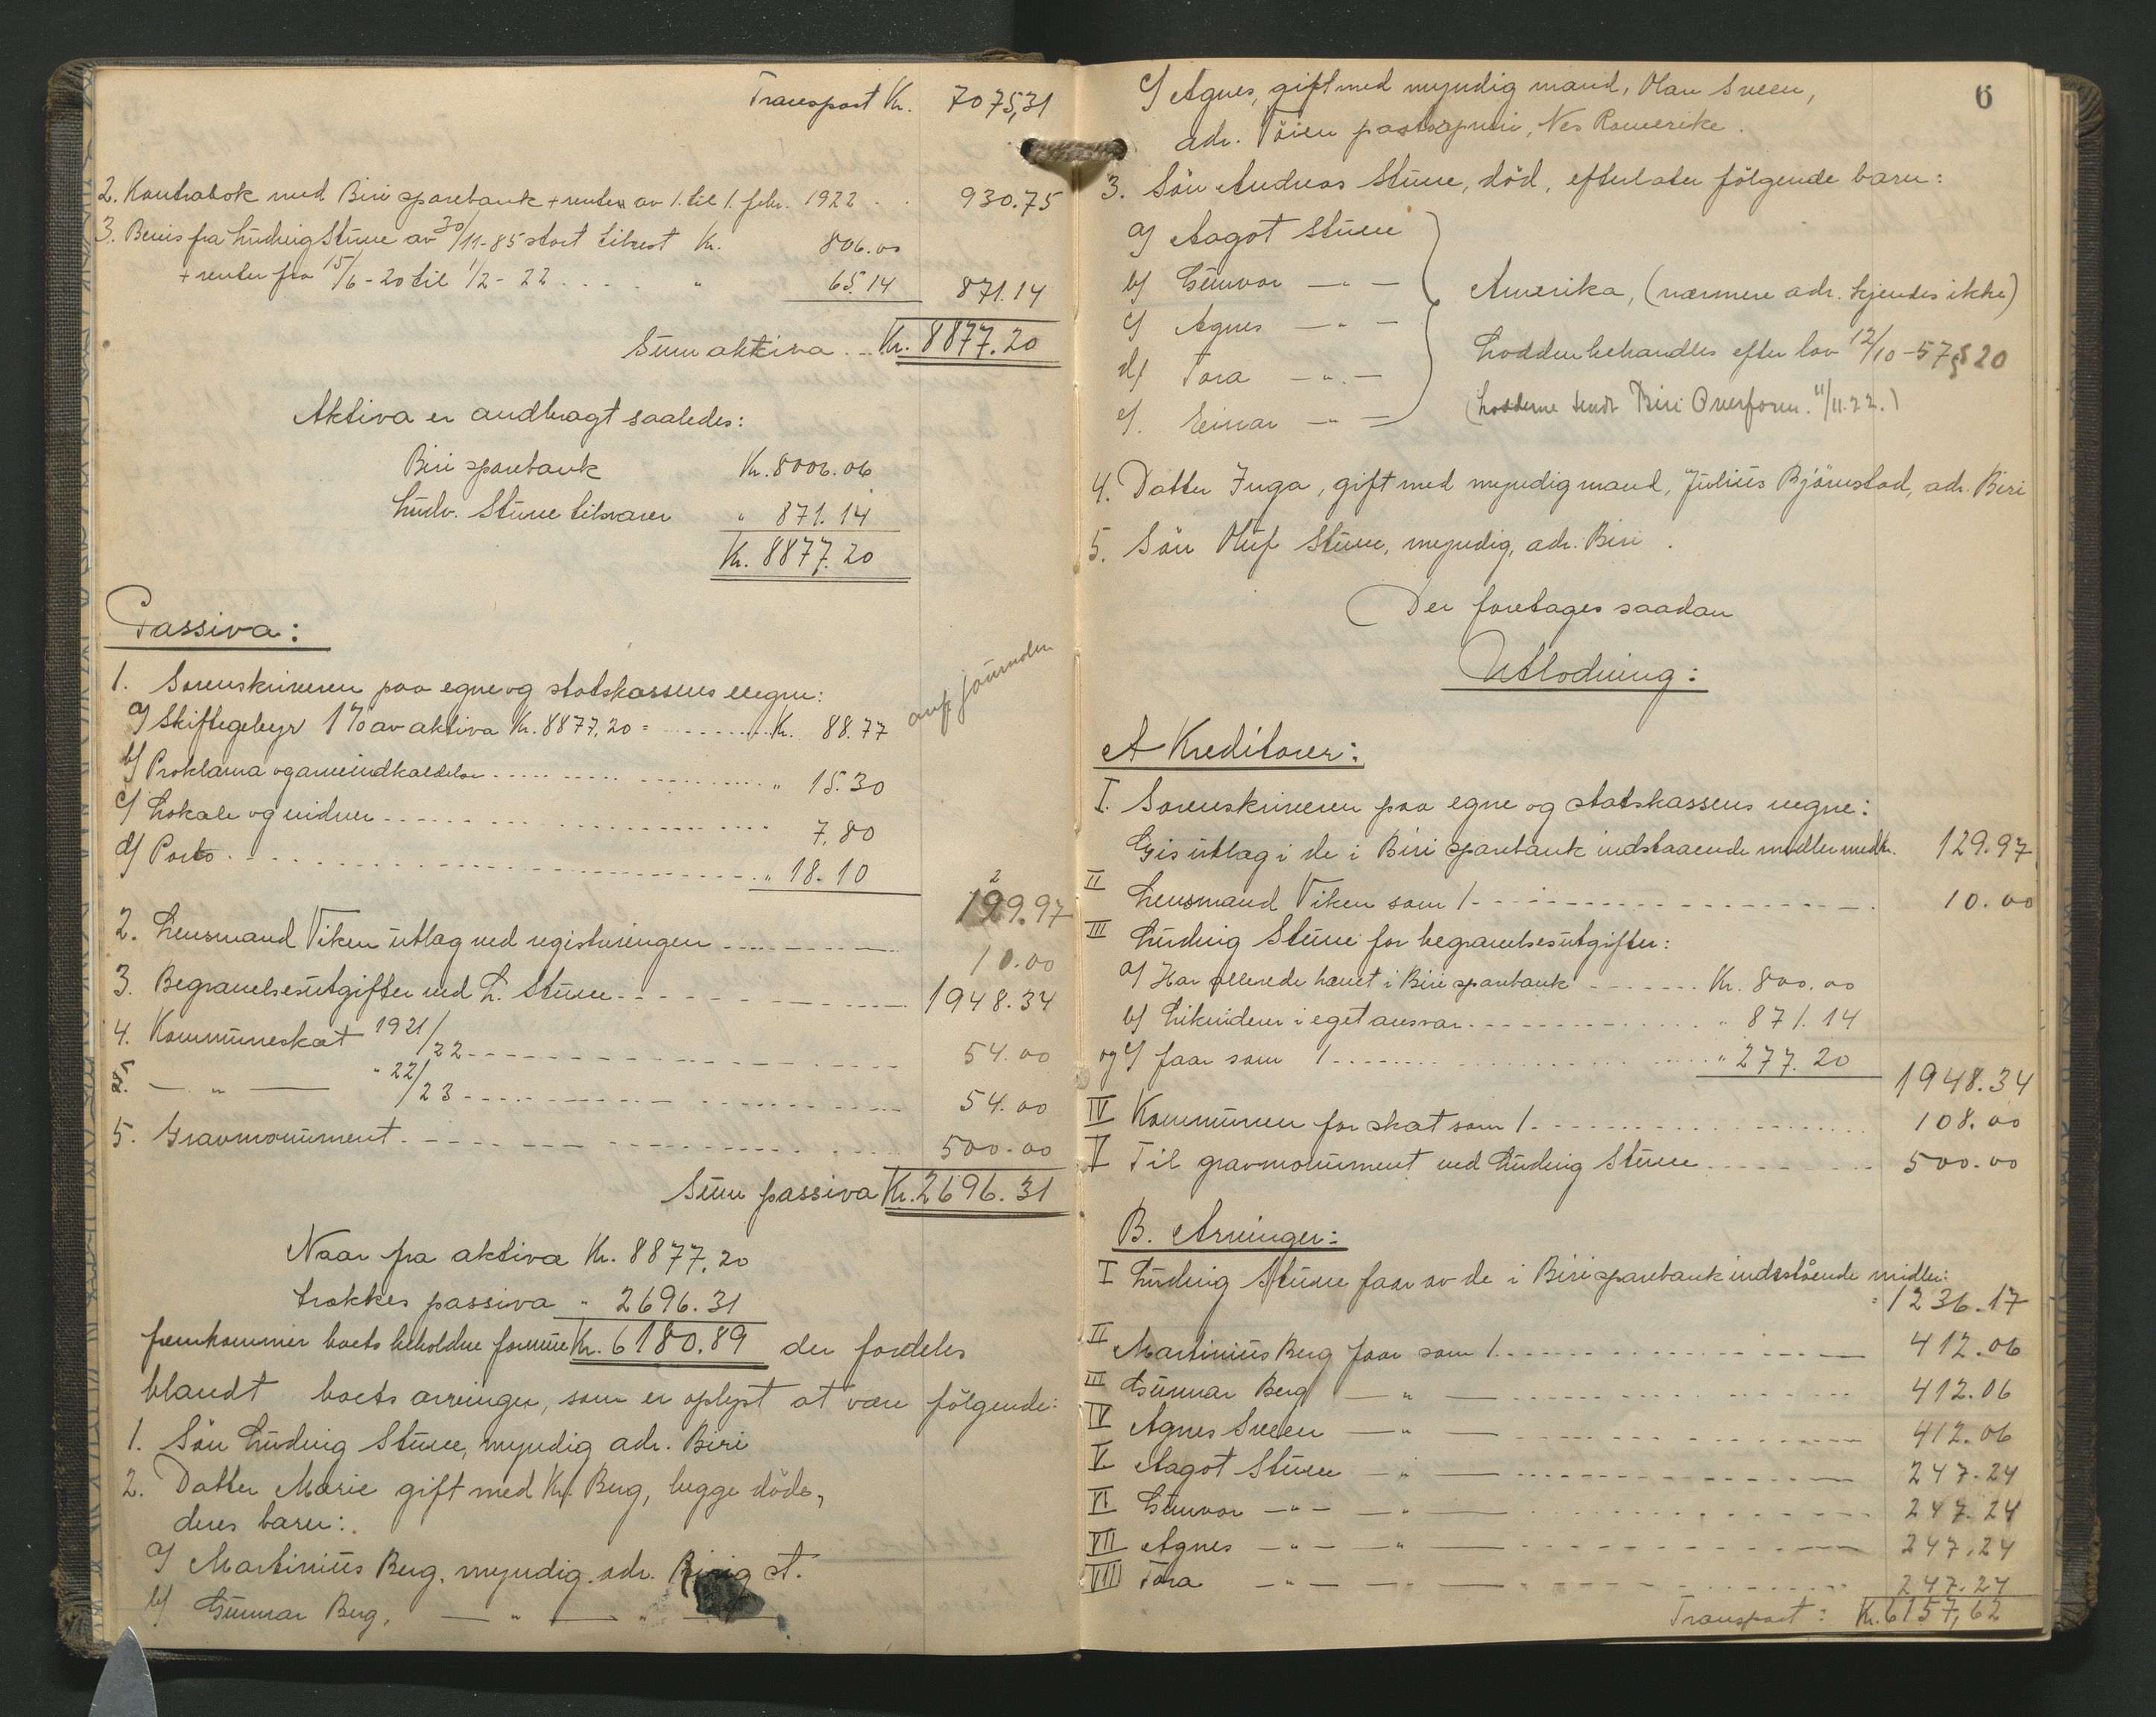 Transport Kr. 7075,31
2. Kontrabok med Biri sparebank + renter av 1. til 1. febr. 1922 . . 930.75
3. Bevis fra Ludvig Stuve av 30/11-85 stort tilrest Kr. 806.00
+ renter fra 15/6-20 til 1/2-22 . . . . " 65.14 871.14
Sum aktiva . . Kr. 8877.20
Aktiva er andbragt saaledes:
Biri sparebank Kr. 8006.06
Ludv. Stuve tilsvarer " 871.14
Kr. 8877.20
Passiva:
1. Sorenskriveren paa egne og statskassens vegne:
a/ Skiftegebyr 1% av aktiva Kr. 8877,20 = . . . . Kr. 88.77
b/ Proklama og arveindkaldelse . . . . " 15.30
c/ Lokale og vidner . . . . 7.80
d/ Porto . . . . " 18.10
129.97
2. Lensmand Viken utlæg ved registreringen . . . . 10.00
3. Begravelsesutgifter ved L. Stuve . . . . 1948.34
4. Kommuneskat 1921/22 . . . . 54.00
5. — " — " 22/23 . . . . 54.00
5. Gravmonument . . . . 500.00
Sum passiva Kr. 2696.31
Naar fra aktiva Kr. 8877.20
trækkes passiva " 2696.31
fremkommer boets beholdne formue Kr. 6180.89 der fordeles
blandt boets arvinger, som er oplyst at være følgende:
1. Søn Ludvig Stuve, myndig adr. Biri
2. Datter Marie gift med Kr. Berg, begge døde,
deres barn:
a/ Martinius Berg, myndig. adr. st.
b/ Gunnar Berg, — " — " —
6
c/ Agnes, gift med myndig mand, Olav Sveen,
adr. Töien , Nes Romerike.
3. Sön Andreas Stuve, död, efterlater fölgende barn:
a/ Aagot Stuve
b/ Gunvor — " —
c/ Agnes — " —
d/ Tora — " —
e/. Einar — " —
Amerika, (nærmere adr. kjendes ikke)
Lodden behandles efter lov 12/10-57 § 20
(Lodderne sendt Biri Overform. 11/11.22.)
4. Datter Inga, gift med myndig mand, Julius Björnstad, adr. Biri
5. Sön Oluf Stuve, myndig, adr. Biri.
Der foretages saadan
Utlodning:
A Kreditorer:
I. Sorenskriveren paa egne og statskassens vegne:
Gis utlæg i de i Biri sparebank indstaaende midler med kr. 129.97
II Lensmand Viken som 1 . . . . 10.00
III Ludvig Stuve for begravelsesutgifter:
a/ Har allerede hævet i Biri sparebank . . . . Kr. 800.00
b/ Likviderer i eget ansvar . . . . " 871.14
og c/ faar som 1 . . . . " 277.20
1948.34
IV Kommunen for skat som 1 . . . . 108.00
V Til gravmonument ved Ludvig Stuve . . . . 500.00
B. Arvinger:
I Ludvig Stuve faar av de i Biri sparebank indestående midler:
" 1236.17
II Martinius Berg faar som 1 . . . . 412.06
III Gunnar Berg — " — . . . . 412.06
IV Agnes Sveen — " — . . . . 412.06
V Aagot Stuve — " — . . . . 247.24
VI Gunvor — " — — " — . . . . 247.24
VII Agnes — " — — " — . . . . 247.24
VIII Tora — " — — " — . . . . 247.24
Transport: Kr. 6157,62